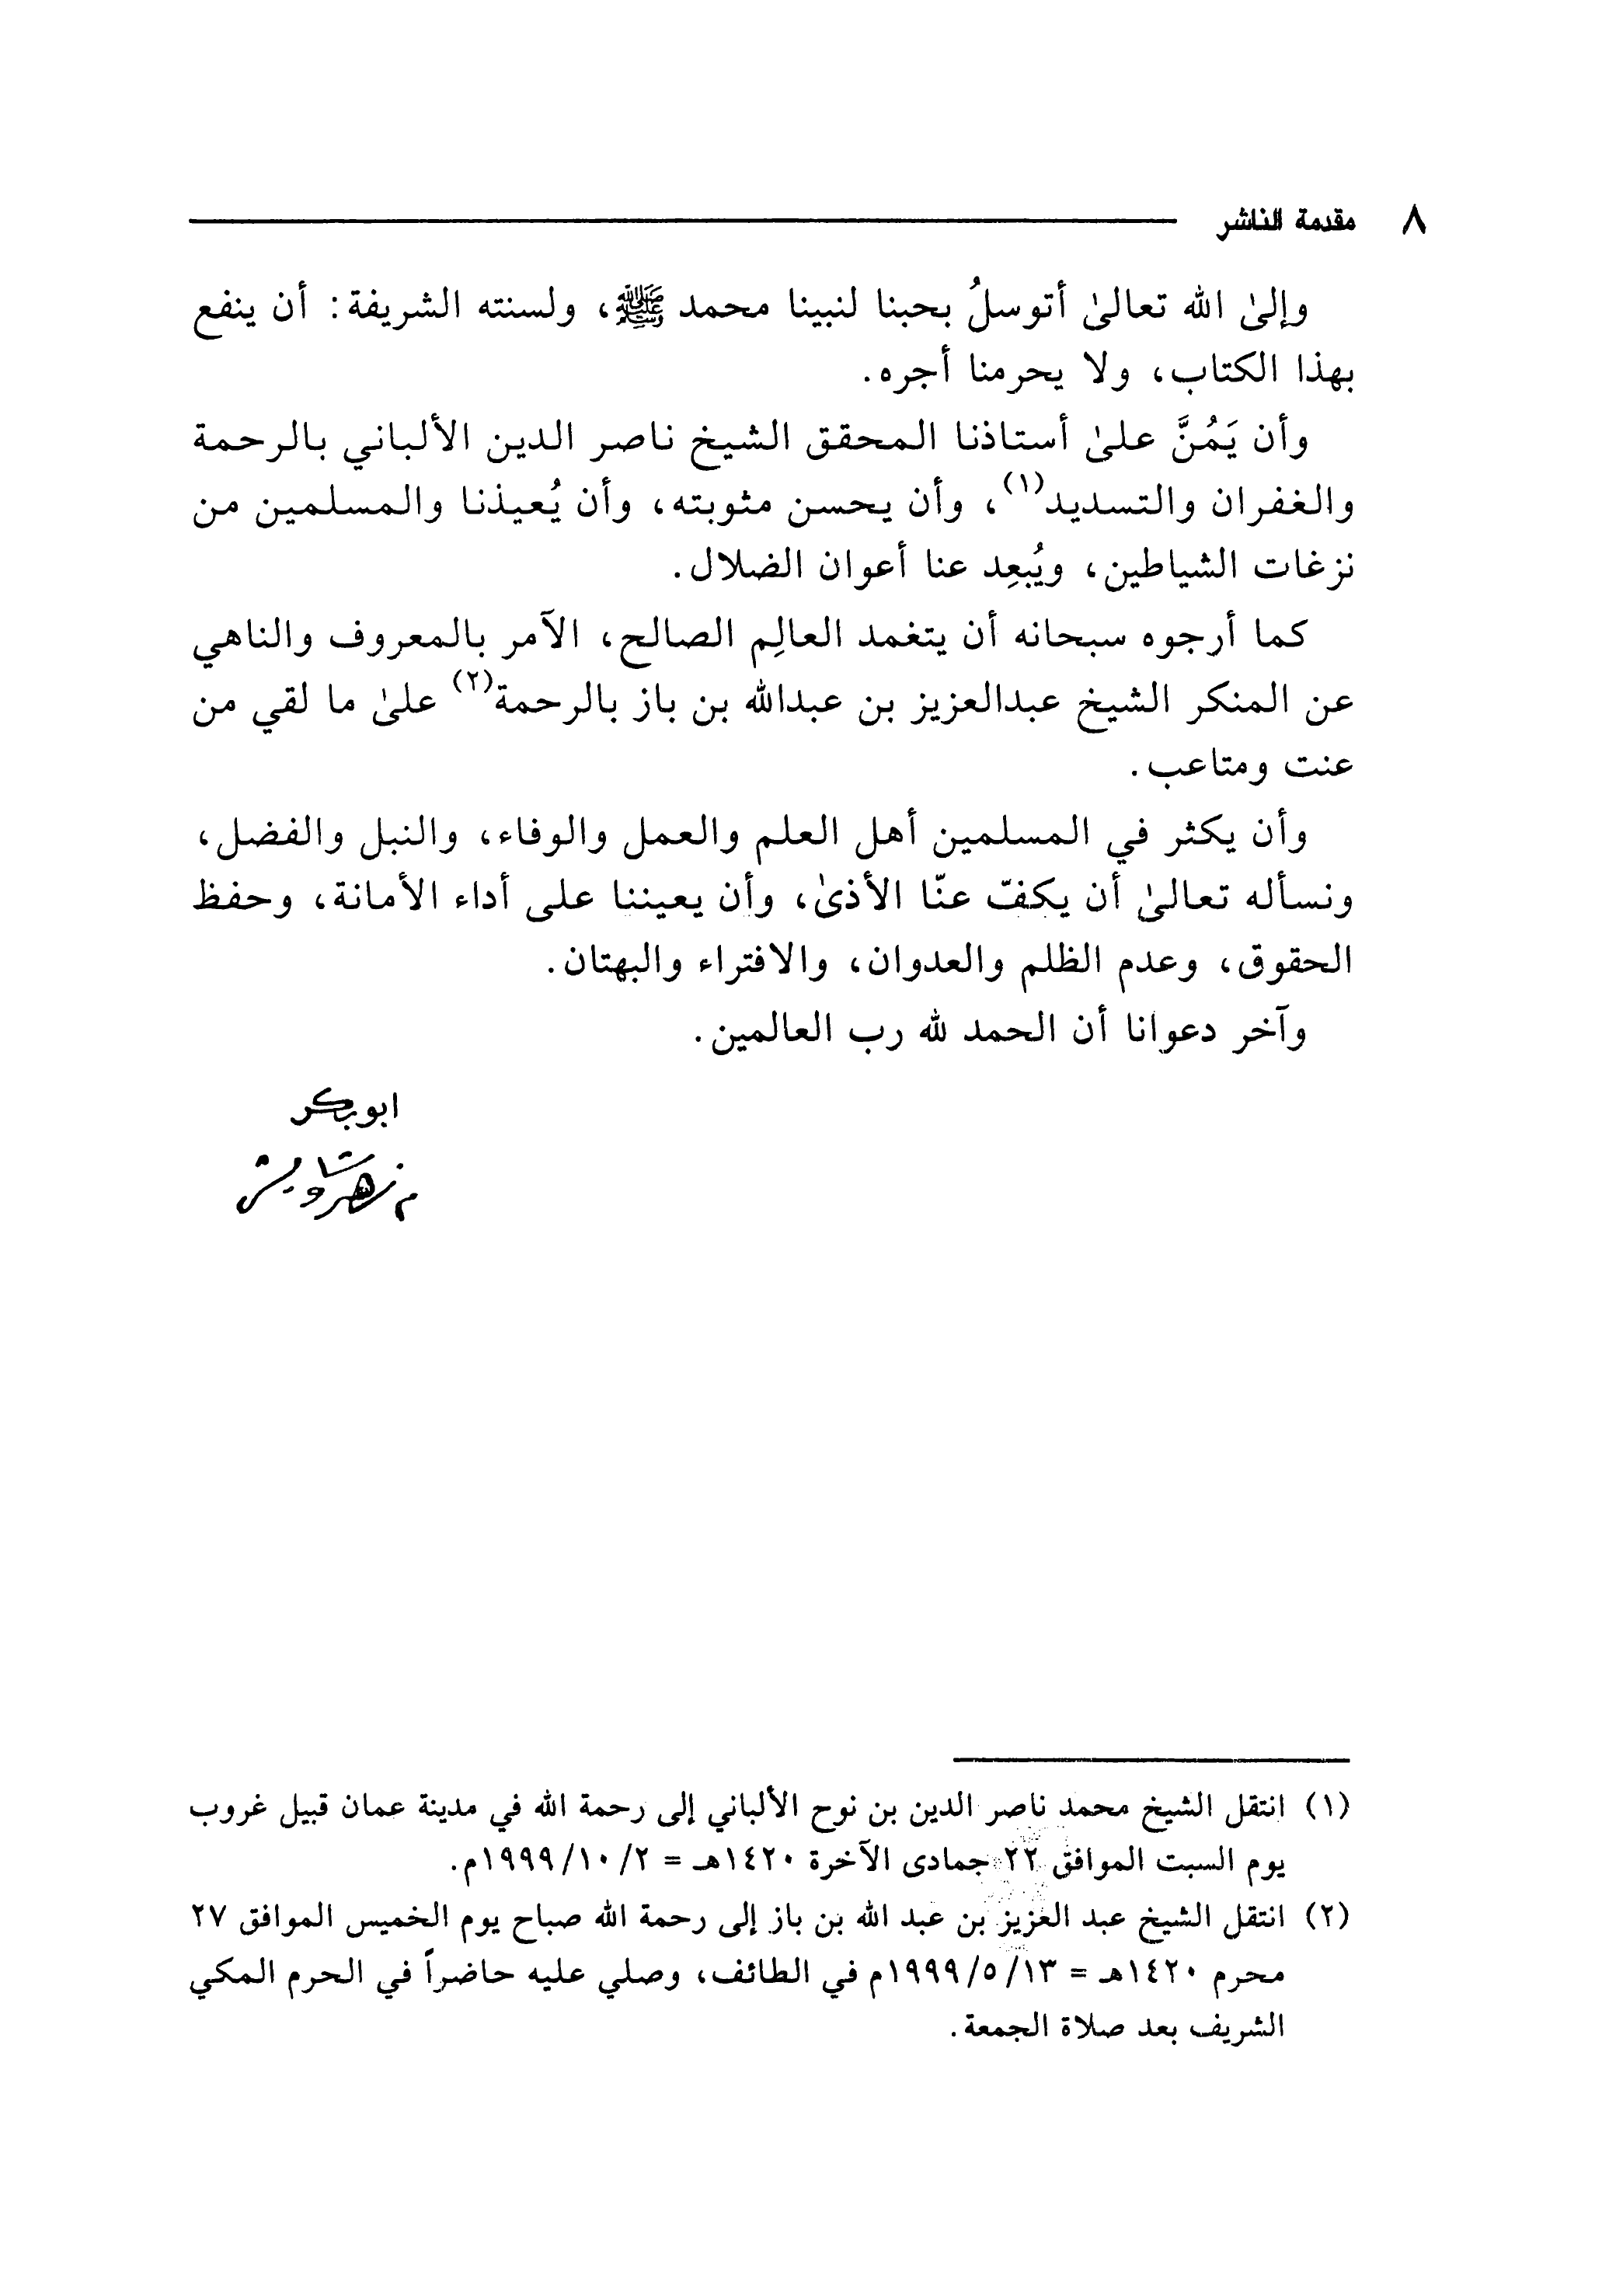 ٨ مقدمة الناشر
وإلىٰ الله تعالىٰ أتوسلُ بحبنا لنبينا محمد ﷺ، ولسنته الشريفة: أن ينفع
بهذا الكتاب، ولا يحرمنا أجره.
وأن يَمُنَّ علىٰ أستاذنا المحقق الشيخ ناصر الدين الألباني بالرحمة
والغفران والتسديد(١)، وأن يحسن مثوبته، وأن يُعيذنا والمسلمين من
نزغات الشياطين، ويُبعِد عنا أعوان الضلال.
كما أرجوه سبحانه أن يتغمد العالِم الصالح، الآمر بالمعروف والناهي
عن المنكر الشيخ عبدالعزيز بن عبدالله بن باز بالرحمة(٢) علىٰ ما لقي من
عنت ومتاعب.
وأن يكثر في المسلمين أهل العلم والعمل والوفاء، والنبل والفضل،
ونسأله تعالىٰ أن يكفّ عنّا الأذىٰ، وأن يعيننا على أداء الأمانة، وحفظ
الحقوق، وعدم الظلم والعدوان، والافتراء والبهتان.
وآخر دعوانا أن الحمد لله رب العالمين.
ابوبكر
(١) انتقل الشيخ محمد ناصر الدين بن نوح الألباني إلى رحمة الله في مدينة عمان قبيل غروب
يوم السبت الموافق ٢٢ جمادى الآخرة ١٤٢٠هـ = ١٩٩٩/١٠/٢م.
(٢) انتقل الشيخ عبد العزيز بن عبد الله بن باز إلى رحمة الله صباح يوم الخميس الموافق ٢٧
محرم ١٤٢٠هـ = ١٩٩٩/٥/١٣م في الطائف، وصلي عليه حاضراً في الحرم المكي
الشريف بعد صلاة الجمعة.